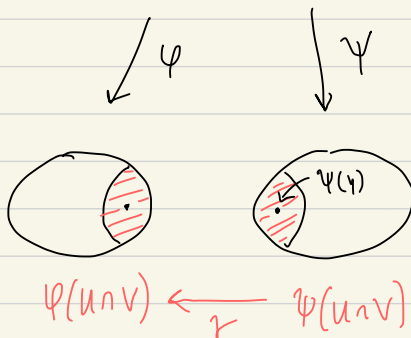 φ ψ
ψ(y)
φ(U∩V) ← ψ(U∩V)
γ